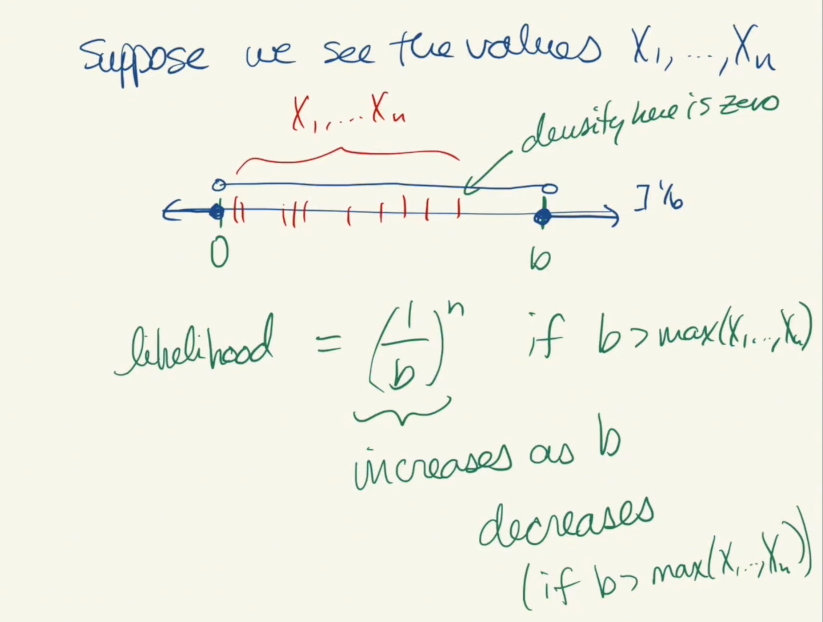 Suppose we see the values X₁, ..., Xₙ
X₁, ... Xₙ
density here is zero
] 1/b
0
b
likelihood = (1/b)ⁿ if b > max(X₁, ..., Xₙ)
increases as b
decreases
(if b > max(X₁, ..., Xₙ))